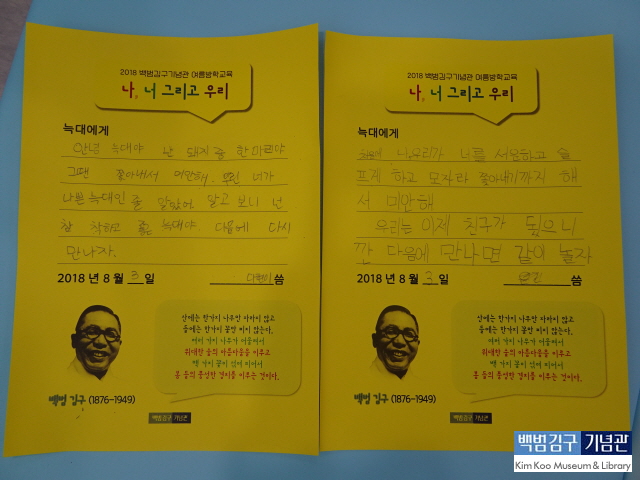 2018 백범김구기념관 여름방학교육
나, 너 그리고 우리
늑대에게
안녕 늑대야 난 돼지 중 한마리야
그땐 쫓아내서 미안해. 우린 너가
나쁜 늑대인 줄 알았어. 알고 보니 넌
참 착하고 늑대야. 다음에 다시
만나자.
2018 년 8 월 3 일 씀
산에는 한가지 나무만 자라지 않고
들에는 한가지 꽃만 피지 않는다.
여러 가지 나무가 어울려서
위대한 숲의 아름다움을 이루고
백 가지 꽃이 섞여 피어서
봄 들의 풍성한 경치를 이루는 것이다.
백범 김구 (1876-1949)
백범김구 기념관
2018 백범김구기념관 여름방학교육
나, 너 그리고 우리
늑대에게
우리가 너를 서운하고 슬
프게 하고 모자라 쫓아내기까지 해
서 미안해
우리는 이제 친구가 됬으니
깐 다음에 만나면 같이 놀자
2018 년 8 월 3 일 씀
산에는 한가지 나무만 자라지 않고
들에는 한가지 꽃만 피지 않는다.
여러 가지 나무가 어울려서
위대한 숲의 아름다움을 이루고
백 가지 꽃이 섞여 피어서
봄 들의 풍성한 경치를 이루는 것이다.
백범 김구 (1876-1949)
백범김구 기념관
백범김구 기념관
Kim Koo Museum & Library